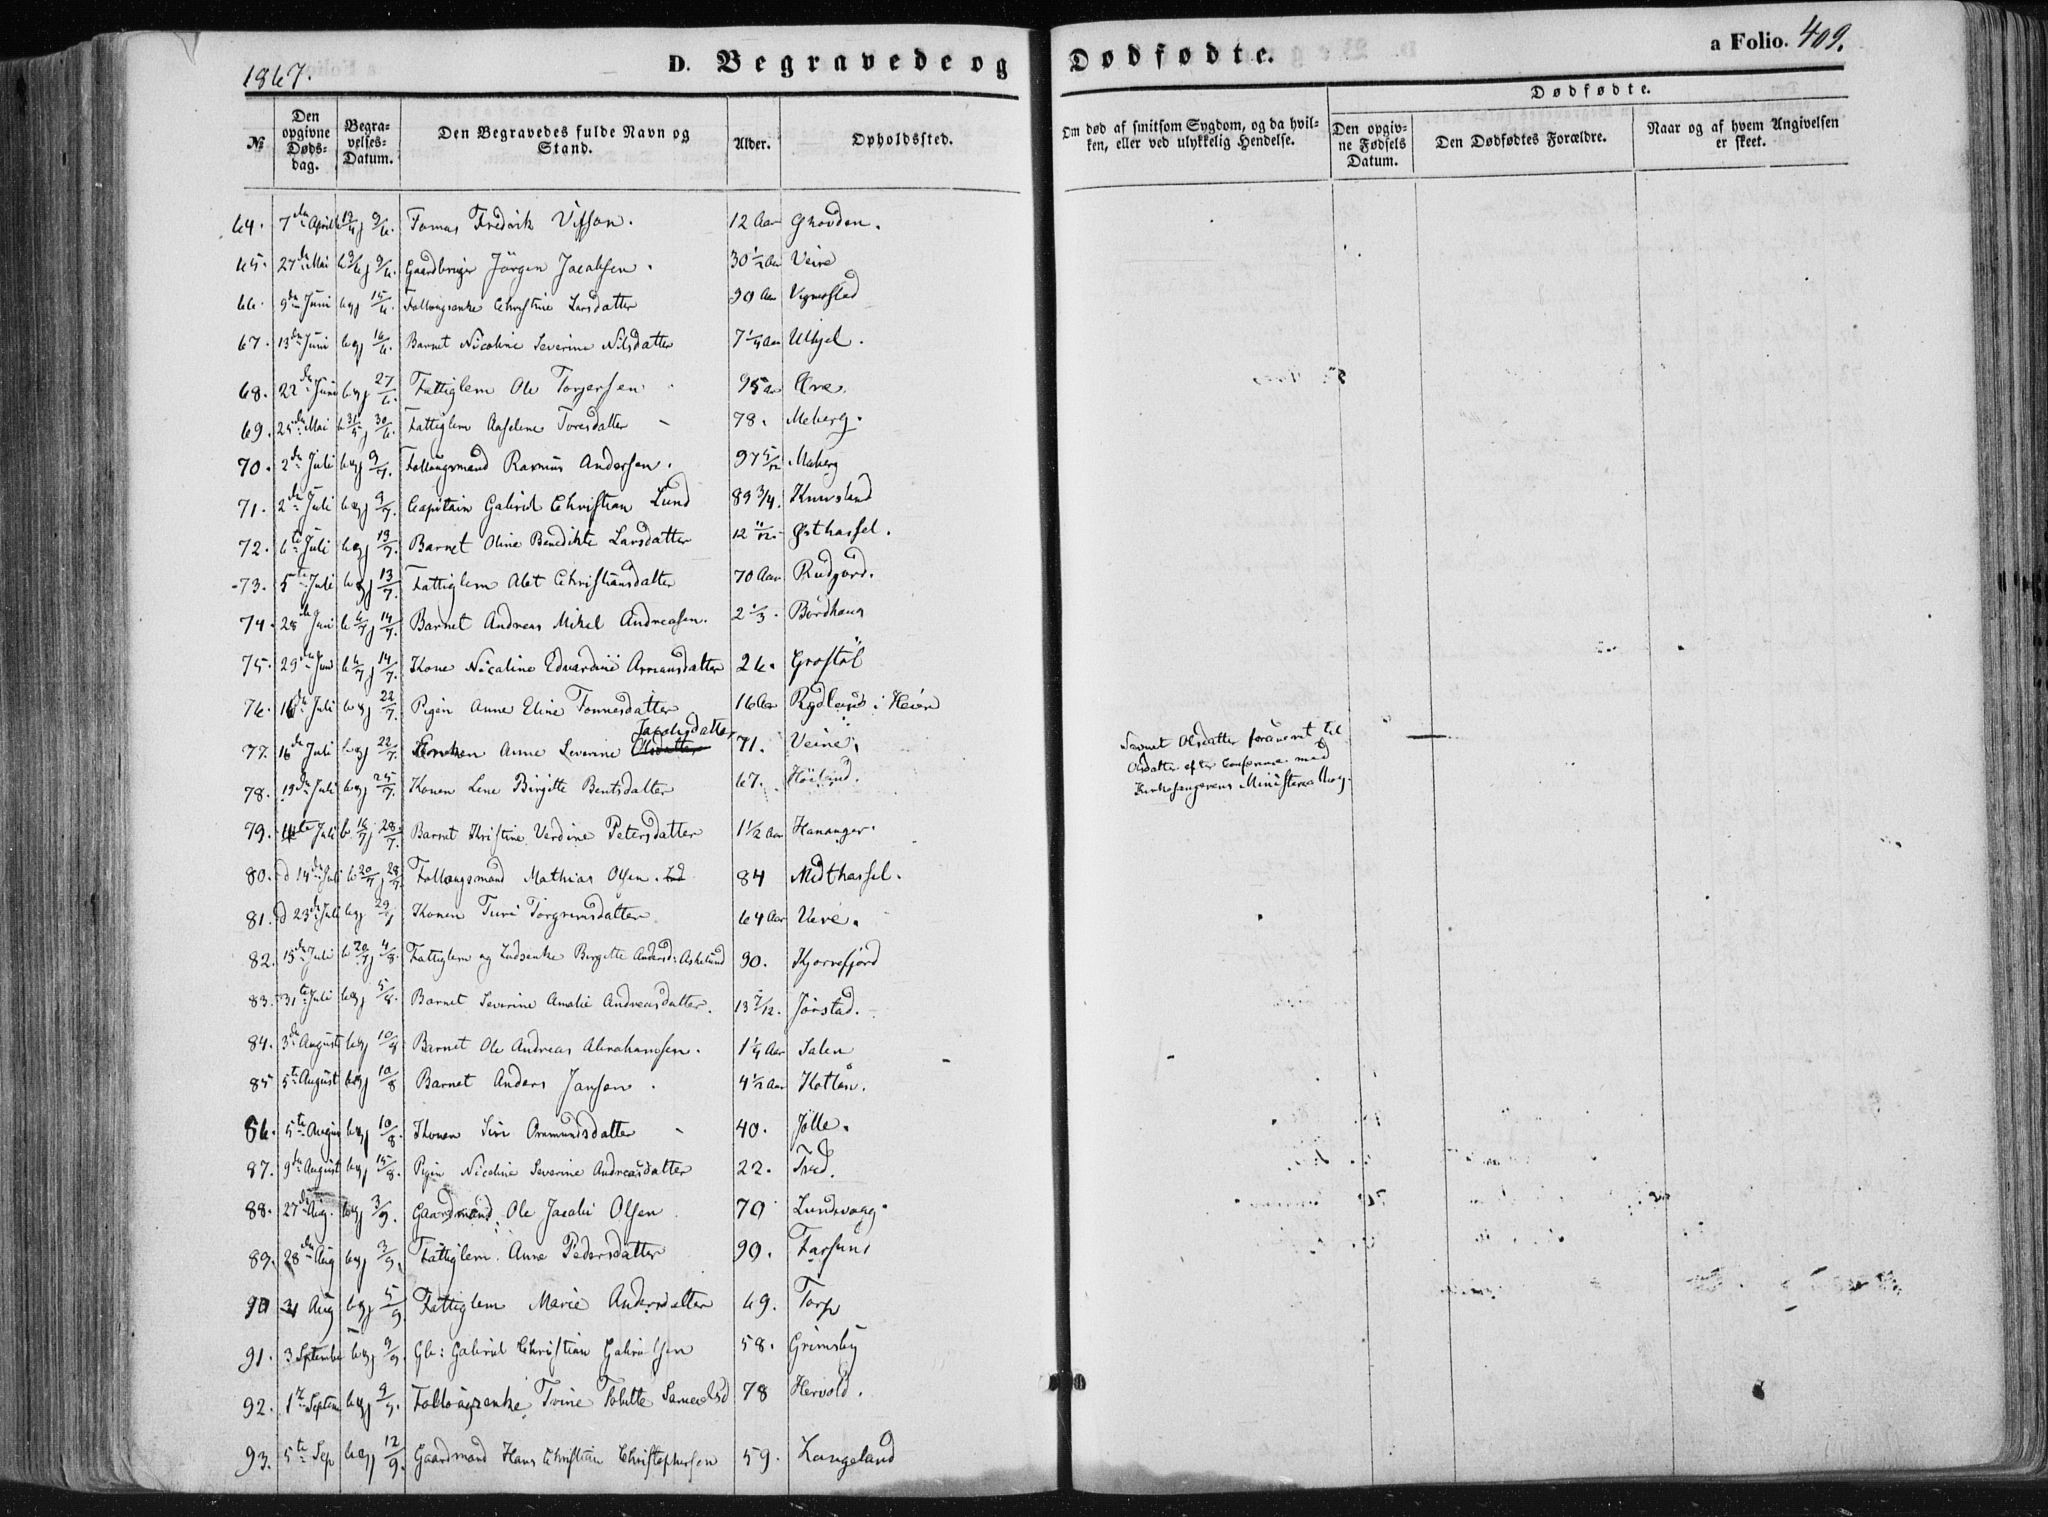 1867.
D. Begravede og Dødfødte.
a Folio. 409.
№
Den opgivne Døds-dag.
Begra-velses-Datum.
Den Begravedes fulde Navn og Stand.
Alder.
Opholdssted.
Om død af smitsom Sygdom, og da hvil-ken, eller ved ulykkelig Hendelse.
Dødfødte.
Den opgiv-ne Fødsels Datum.
Den Dødfødtes Forældre.
Naar og af hvem Angivelsen er skeet.
64. 7de April b 12/4 j 9/6. Tomas Fredrik 12 Aar
65. 27de Mai j 9/6. Gaardbruger Jørgen Jacobsen. 30 1/2 Aar Veire
66. 9de Juni begj 15/6. Christine Larsdatter 90 Aar Vigmostad
67. 13de Juni begj 16/6. Barnet Nicoline Severine Nilsdatter 7 1/4 Aar
68. 22de Juni begj 27/6. Fattiglem Ole Torjersen 95 Aar Øre.
69. 25de Mai b 31/5 j 30/6. Fattiglem Toresdatter 78. Meberg.
70. 2de Juli begj 9/7. Follaugsmand Rasmus Andersen. 97 5/12 Meberg
71. 2de Juli begj 9/7. Capitain Gabriel Christian Lund 89 3/4.
72. 6te Juli begj 13/7. Barnet Oline Benedikte Larsdatter 12 11/12. Østhassel.
73. 5te Juli begj 13/7. Fattiglem Alet Christiansdatter 70 Aar Rudjord.
74. 28de Juni b 6/7 j 14/7. Barnet Andreas Mikel Andreasen. 2 1/3. Bordhaug
75. 29de Juni b 6/7 j 14/7. Kone Nicoline Edvardine 26. Grostøl
76. 16de Juli begj 22/7. Pigen Anne Eline Tønnesdatter 16 Aar
77. 16de Juli begj 22/7. Enken Anne Severine Olsdatter Jacobsdatter 71. Veire. Navnet Olsdatter forandret til
Olsdatter efter Conference med
Kirkesangerens Ministerialbog.
78. 19de Juli begj 25/7. Konen Lene Birgitte Bentsdatter 67. Høiland.
79. 11te Juli b 16/7 j 28/7. Barnet Kristine Verdine Petersdatter 1 1/2 Aar Hananger.
80. d 14de Juli b 20/7 j 28/7. Follaugsmand Mathias Olsen. 84 Midthassel.
81. d 23de Juli begj 29/7 Konen Turi Torgrimsdatter 64 Aar Uere.
82. 15de Juli b 20/7 j 4/8. Fattiglem og Birgitte Andersd: Askelund 90. Kjørrefjord
83. 31te Juli begj 5/8. Barnet Severine Amalie Andreasdatter. 13 7/12. Jørstad.
84. 3de August begj 10/8 Barnet Ole Andreas Abrahamsen. 1 1/4 Aar Salen
85 5te August begj 10/8 Barnet Anders Jansen. 4 1/2 Aar
86. 5te August begj 10/8. Konen Siri Omundsdatter 40. Jølle.
87. 9de August begj 15/8. Pigen Nicoline Severine Andreasdatter 22. Tred.
88. 27de Aug. begj 3/9. Gaardmand Ole Jacob Olsen 70 Lundevaag.
89. 28de Aug begj 3/9. Fattiglem. Anne Pedersdatter 90. Farsund
90 31 Aug begj 5/9. Fattiglem Marie Andersdatter 69. Torp
91. 3 September begj 9/9. Gbr: Gabriel Christian Gabrielsen 58. Grimsby
92. 1te Septem begj 9/9. Follaugsenke Trine Tobitte Samuelsd 78 Hervold.
93. 5te Sep begj 12/9. Gaardmand Hans Christian Christophersen 59. Langeland